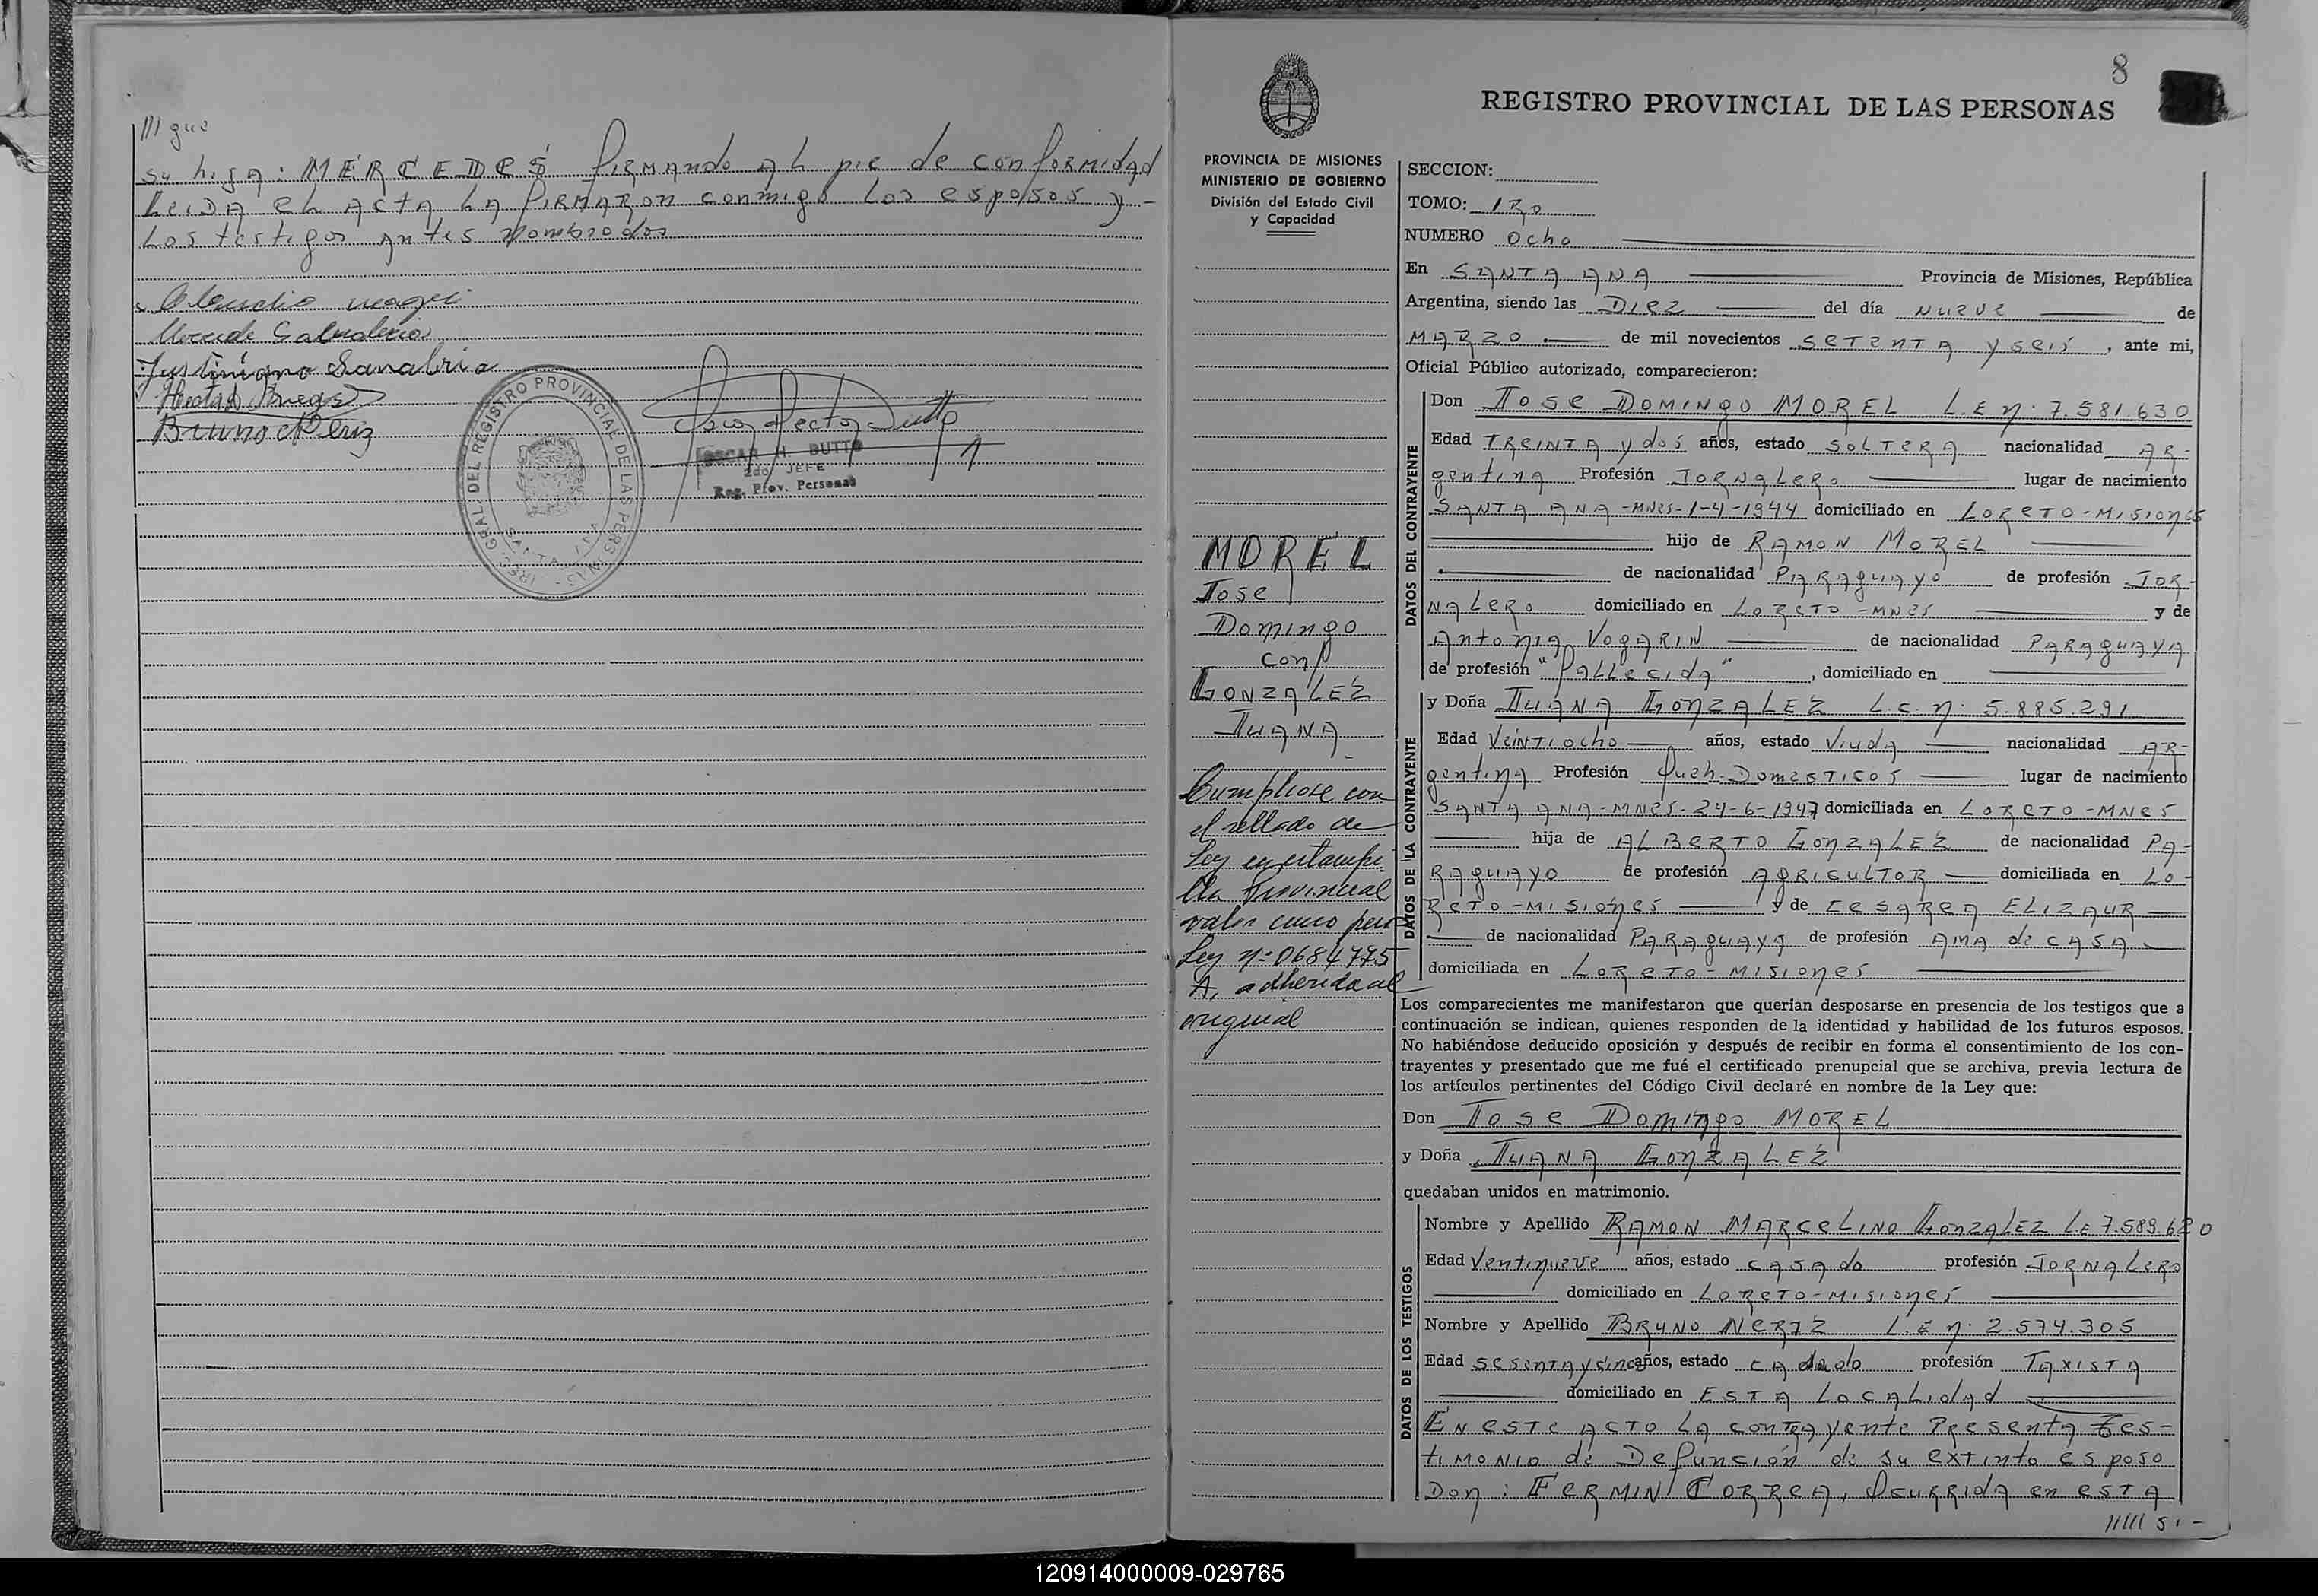 //// que
su hija: MERCEDES firmando al pie de conformidad
Leida el acta, la firmaron conmigo los esposos y -
los testigos antes nombrados
Claudio
Justiniano Sanabria
Bruno Neriz
DIREC. GRAL. DEL REGISTRO PROVINCIAL DE LAS PERSONAS
SANTA ANA
OSCAR H. DUTTO
2do. JEFE
Reg. Prov. Personas
8
REGISTRO PROVINCIAL DE LAS PERSONAS
PROVINCIA DE MISIONES
MINISTERIO DE GOBIERNO
División del Estado Civil
y Capacidad
MOREL
Jose
Domingo
con
GONZALEZ
JUANA
Cumpliose con
el sellado de
Ley en estampi
lla Provincial
valor cinco pesos
Ley nº 0684775
A, adherida al
original
SECCION:
TOMO: 1Ro
NUMERO Ocho
En SANTA ANA Provincia de Misiones, República
Argentina, siendo las Diez del día nueve de
MARZO de mil novecientos setenta y seis, ante mi,
Oficial Público autorizado, comparecieron:
DATOS DEL CONTRAYENTE
Don Jose Domingo MOREL L.E n. 7.581.630
Edad Treinta y dos años, estado soltera nacionalidad Ar-
gentina Profesión Jornalero lugar de nacimiento
SANTA ANA-Mnes-1-4-1944 domiciliado en Loreto-Misiones
hijo de RAMON MOREL
de nacionalidad Paraguayo de profesión Jor-
nalero domiciliado en Loreto-Mnes y de
Antonia Vogarin de nacionalidad Paraguaya
de profesión "fallecida", domiciliado en
DATOS DE LA CONTRAYENTE
y Doña JUANA GONZALEZ L.C. n. 5.885.291
Edad Veintiocho años, estado Viuda nacionalidad Ar-
gentina Profesión Queh. Domesticos lugar de nacimiento
SANTA ANA-Mnes-24-6-1947 domiciliada en Loreto-Mnes
hija de ALBERTO GONZALEZ de nacionalidad Pa-
raguayo de profesión Agricultor domiciliada en Lo-
reto-Misiones y de CESAREA ELIZAUR
de nacionalidad Paraguaya de profesión Ama de casa
domiciliada en Loreto-Misiones
Los comparecientes me manifestaron que querían desposarse en presencia de los testigos que a
continuación se indican, quienes responden de la identidad y habilidad de los futuros esposos.
No habiéndose deducido oposición y después de recibir en forma el consentimiento de los con-
trayentes y presentado que me fué el certificado prenupcial que se archiva, previa lectura de
los artículos pertinentes del Código Civil declaré en nombre de la Ley que:
Don Jose Domingo MOREL
y Doña JUANA GONZALEZ
quedaban unidos en matrimonio.
DATOS DE LOS TESTIGOS
Nombre y Apellido RAMON MARCELINO GONZALEZ L.E 7.589.620
Edad Ventinueve años, estado casado profesión Jornalero
domiciliado en Loreto-Misiones
Nombre y Apellido BRUNO NERIZ L.E n. 2.574.305
Edad sesenta y cinco años, estado profesión Taxista
domiciliado en Esta Localidad
En este acto la contrayente presenta tes-
timonio de Defunción de su extinto esposo
Don: FERMIN CORREA, Ocurrida en esta
///// si -
120914000009-029765